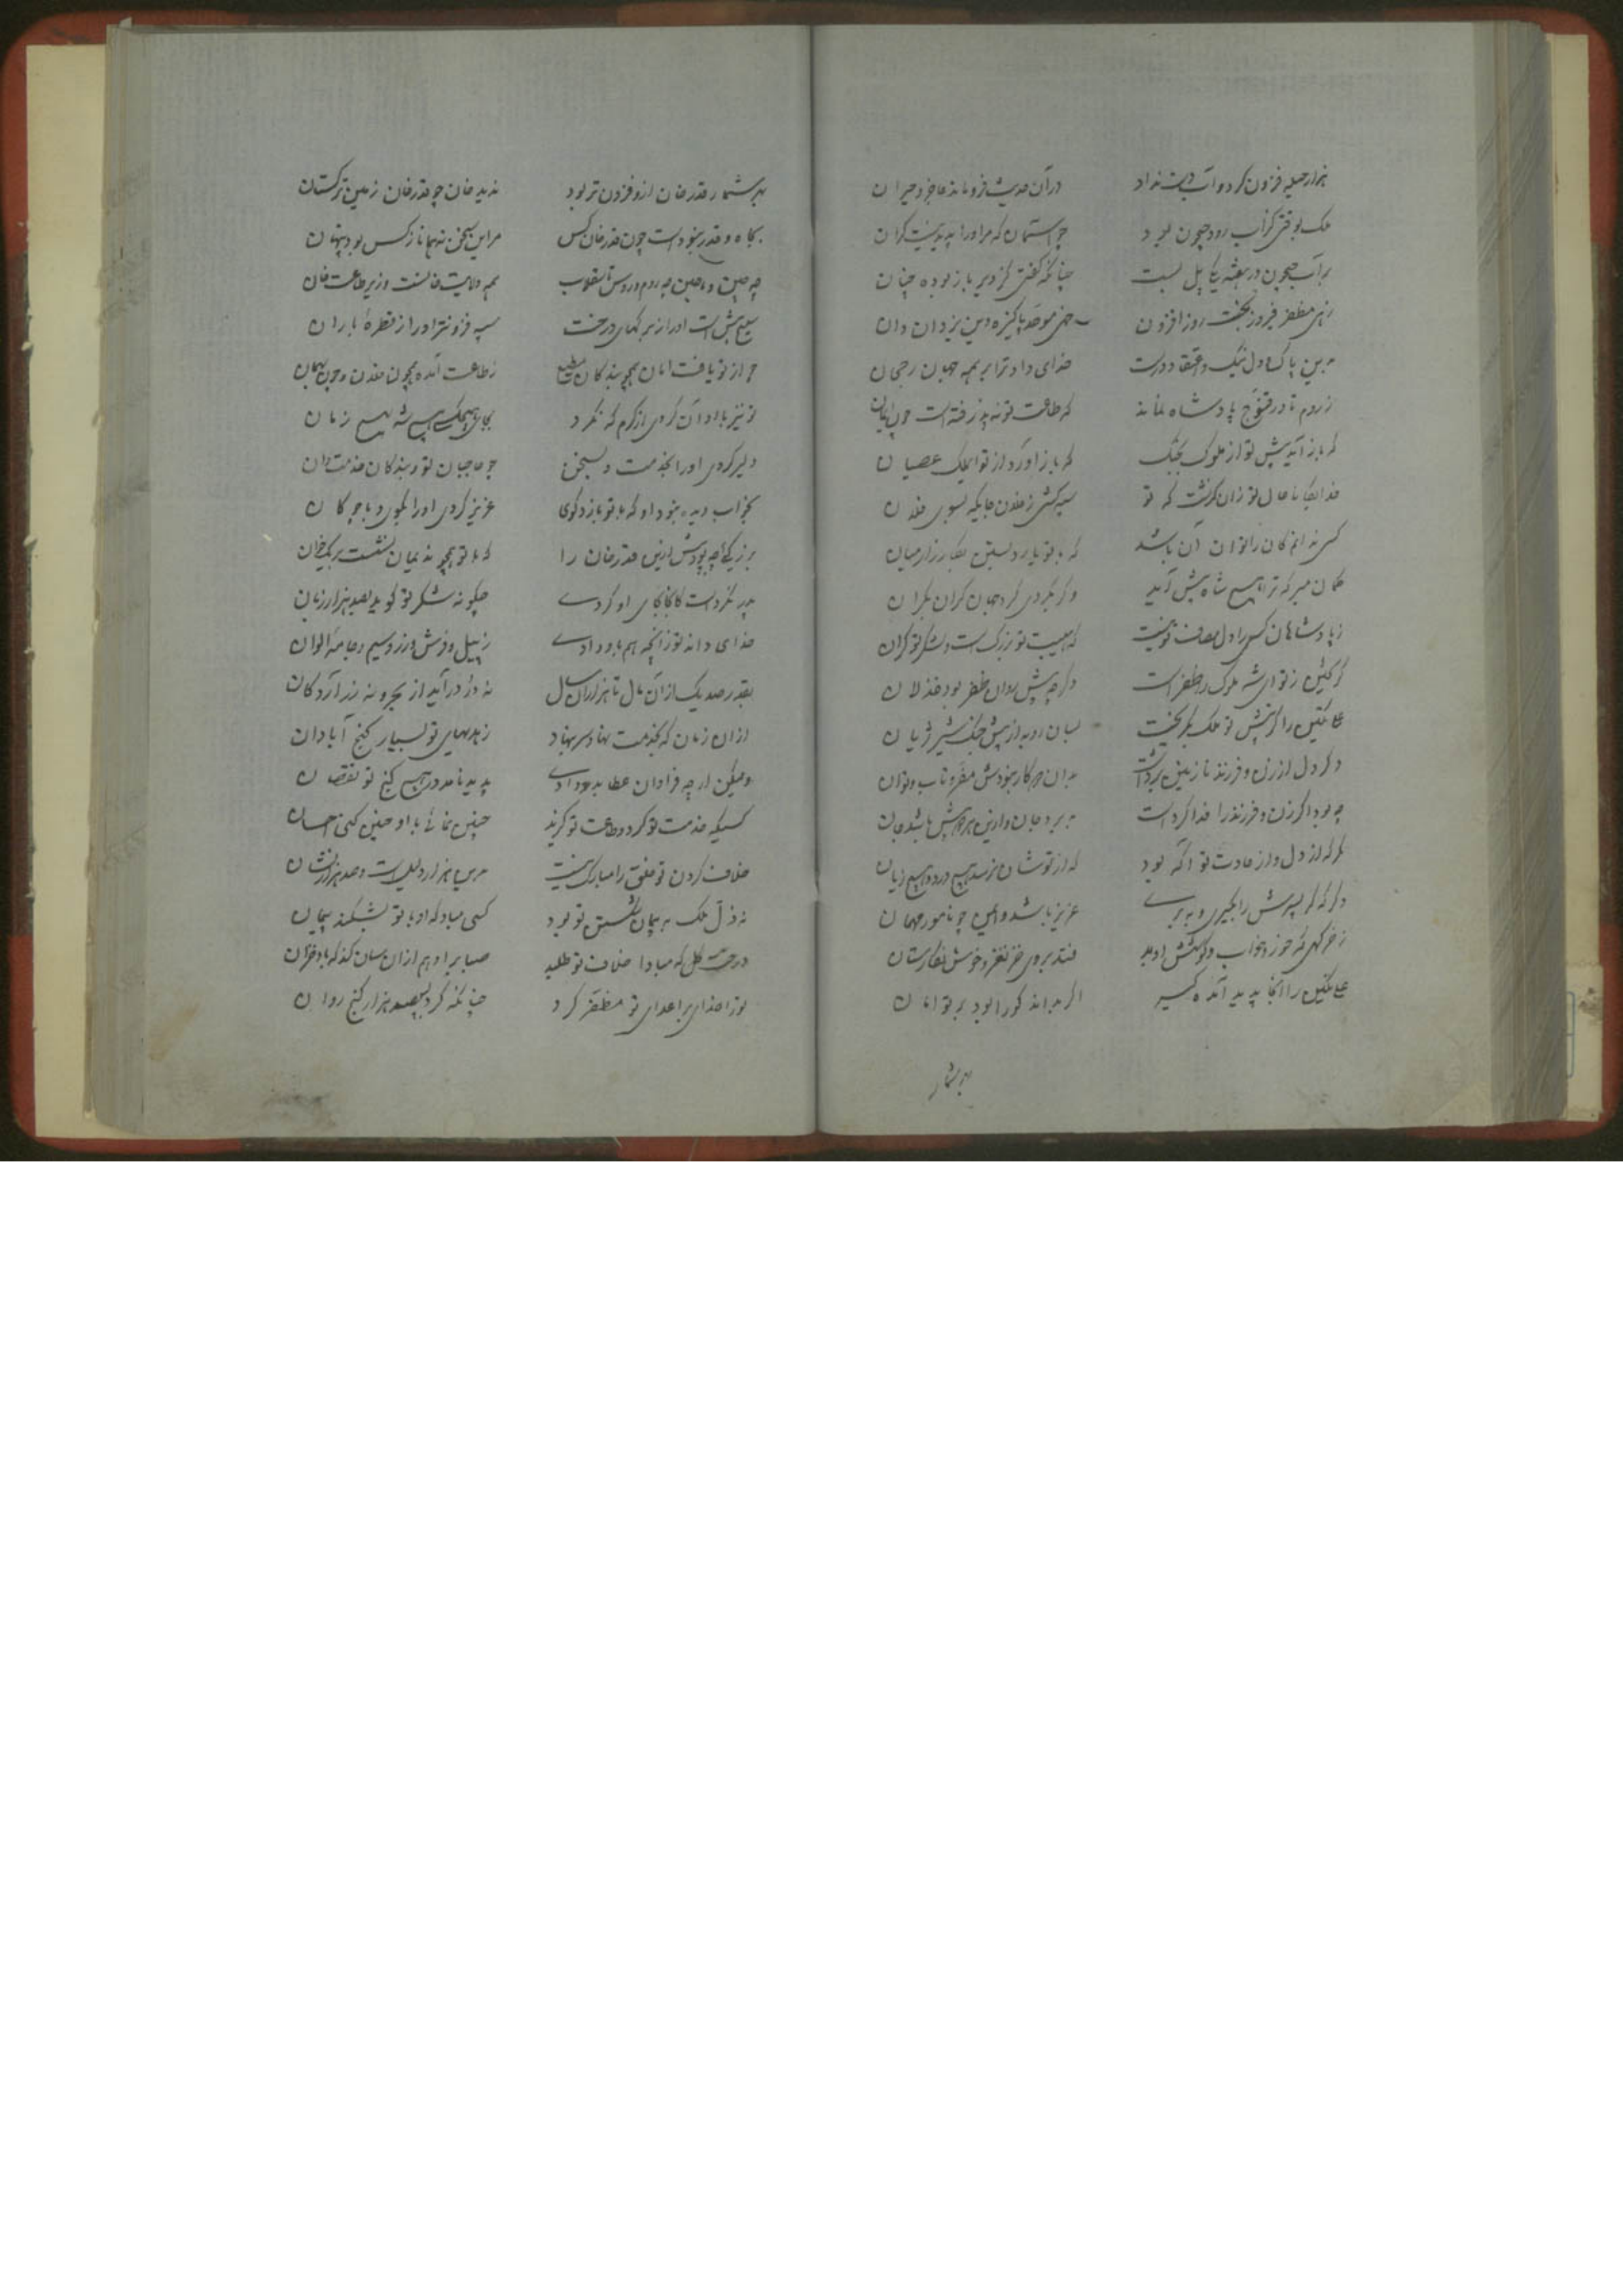 هزار حیله فزون کرد و آب دست نداد در آن حدیث فروماند عاجز و حیران
ملک بوقتی کز آب رود جیحون بود چو آسمان که مر او را پدید نیست کران
بر آب جیحون در هفته یکی پل بست چنانکه گفتی کز دیر باز بوده چنان
زهی مظفر فیروز بخت روزافزون زهی موحد پاکیزه دین یزدان دان
بدین پاک و دل نیک و اعتقاد درست خدای داد ترا بر همه جهان رجحان
ز روم تا در قنوج پادشاه نماند که طاعت تو نپذرفته است چون ایمان
که باز آید پیش تو از ملوک بجنگ که باز آورد از تو ملک عصیان
خدایگانا حال تو زان گذشت که تو سپه کشی ز بسوی فلان
کسی ندانم کان را توان آن باشد که با تو یارد بستن بکارزار میان
گمان مبر که ترا هیچ شاه پیش آید وگر بگردی گرد جهان کران بکران
ز پادشاهان کس را دل مصاف تو نیست که هیبت تو بزرگست و لشکر تو گران
گریختن ز تو ای شه ملوک را ظفر است وگر چه پیش بود خذلان
علی تکین را کز پیش تو ملک بگریخت بسان روبه از پیش جنگ شیر ژیان
وگر دل از زن و فرزند نازنین برداشت بدان که کار نبودش مقر و تاب و توان
چه بود اگر زن و فرزند را فدا کردست ببرد جان و ازین باشد جان
مگر که از دل و از عادت تو آگه بود که از تو شان نرسد هیچ درد و هیچ زیان
وگر که گر پسرش را بگیری و ببری عزیز باشد و ایمن چو نامور مهمان
ز خرگهی که خورد خواب و کوشش او بد فتد بروی خز نغز و خوش نگارستان
علی تکین را آنجا پدید آنده گیر اگر بداند کو را بود بر تو امان
بی شمار
بی شمار قدرخان ازو فزون تر بود ندید خان چو قدرخان زمین ترکستان
بجاه و قدر نبودست چون قدرخان کس مر این سخن نه همانا ز کس بود پنهان
چه چین و ماچین چه روم و روس تا سقلاب همه ولایت خانست و زیر طاعت خان
سلیح بیش است او را ز برگهای درخت سپه فزونتر او را ز قطرهٔ باران
چو از تو یافت امان همچو بندگان مطیع ز طاعت آمده همچون فلان و چون بهمان
تو نیز با او آن کردی از کرم که نکرد بجای هیچکسی هیچ شه بهیچ زمان
دلیر کردی او را بخدمت و بسخن چو حاجبان تو و بندگان خدمت دان
بخواب دیده نبود او که با تو یازد گوی عزیز کردی او را بگوی و با چوگان
بزرگیی چه بود بیش ازین قدرخان را که با تو همچو ندیمان نشست بر یک خوان
پدر نکردست کانجای او کردی چگونه شکر تو گوید بصد هزار زبان
خدای داند تو زانچه هم بدو دادی ز پیل و فرش و زر و سیم و جامهٔ الوان
بقدر صد یک از آن مال تا هزاران سال نه در درآید از بحر و نه زر آید ز کان
از آن زمان که بخدمت نهاد سر بنهاد زبدلهای تو بسیار گنج آبادان
ولیکن ارچه فراوان عطا بدو دادی پدید نامد در هیچ گنج تو نقصان
کسیکه خدمت تو کرد و طاعت تو گزید چنین نمائی با او چنین کنی احسان
خلاف کردن تو خلق را مبارک نیست بدین هزار دلیل است و صد هزار نشان
نه ذل ملک به پیمان شکستن تو بود کسی مباد که او با تو بشکند پیمان
درخت گل که مبادا خلاف تو طلبد صبا بر او هم از آن سان کند که باد خزان
ترا خدای بر اعدای تو مظفر کرد چنانکه کرد بصد هزار گنج روان